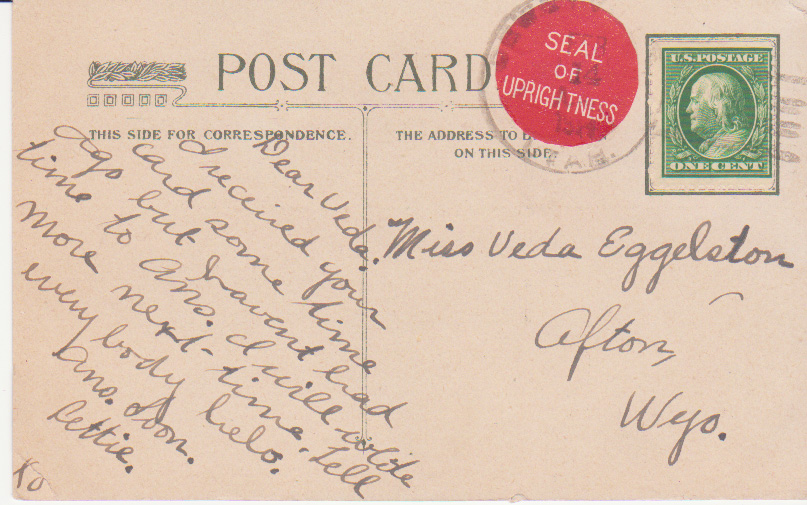 POST CARD
SEAL
OF
UPRIGHTNESS
U.S. POSTAGE
ONE CENT
THIS SIDE FOR CORRESPONDENCE.
THE ADDRESS TO
ON THIS SIDE
UTAH.
Dear Veda.
I received your
card some time
ago but havent had
time to ans. I will wite
more next-time. Tell
every body helo.
Ans. soon.
Lettie.
Miss Veda Eggelston
Afton,
Wyo.